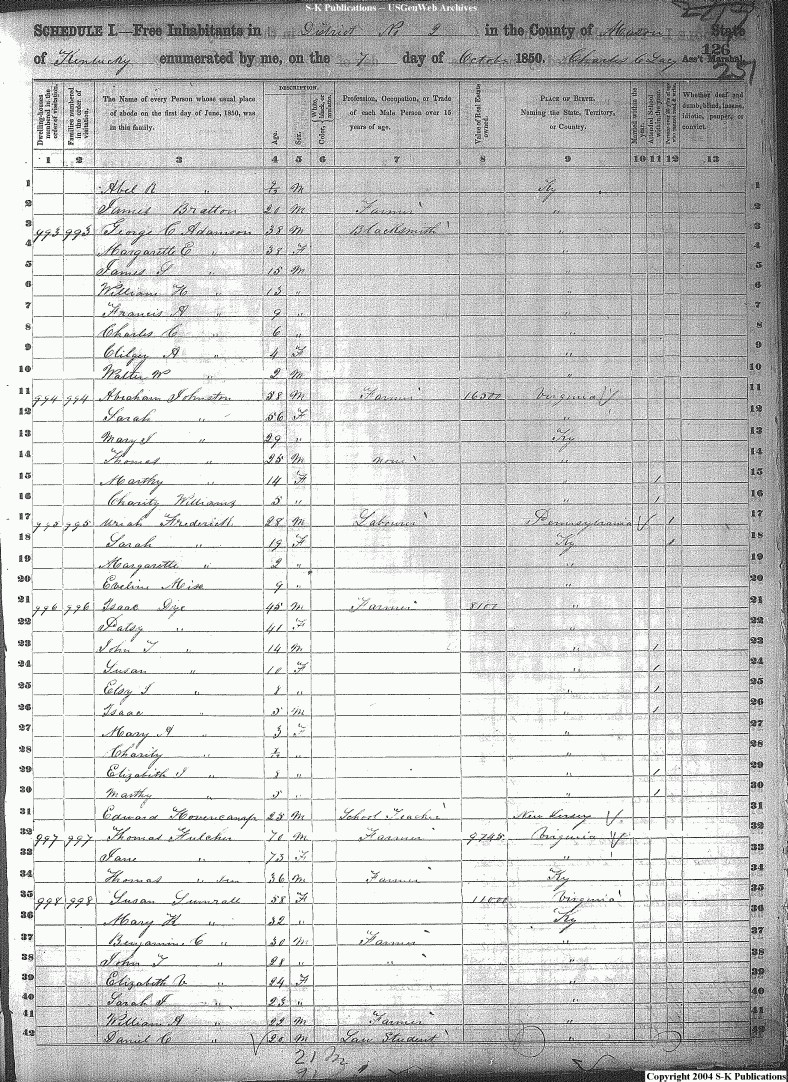 S-K Publications – USGenWeb Archives
SCHEDULE I.—Free Inhabitants in District No 2 in the County of Mason State
of Kentucky enumerated by me, on the 7 day of October 1850. Charles C Lacy Ass't Marshal.
126
DESCRIPTION.
Dwelling-houses numbered in the order of visitation.
Families numbered in the order of visitation.
The Name of every Person whose usual place of abode on the first day of June, 1850, was in this family.
Age.
Sex.
White, black, or mulatto.
Color,
Profession, Occupation, or Trade of each Male Person over 15 years of age.
Value of Real Estate owned.
PLACE OF BIRTH. Naming the State, Territory, or Country.
Married within the year.
Whether deaf and dumb, blind, insane, idiotic, pauper, or convict.
1 2 3 4 5 6 7 8 9 10 11 12 13
1 Abel R " M Ky 1
2 James Bratton 20 M Farmer " 2
3 993 993 George C Adamson 38 M Blacksmith " 3
4 Margarette E " 38 F 4
5 James S " 15 M 5
6 William H " 13 " 6
7 Francis A " 9 " 7
8 Charles C " 6 " 8
9 A " 4 F " 9
10 Walter W " 2 M " 10
11 994 994 Abraham Johnston 58 M Farmer 16500 Virginia 11
12 Sarah " 56 F " 12
13 Mary J " 29 " Ky 13
14 Thomas " 25 M none " 14
15 Marthy " 14 F " 1 15
16 Charity Williams 5 " " 1 16
17 995 995 Uriah Frederick 28 M Labourer Pennsylvania 1 17
18 Sarah " 19 F Ky 1 18
19 Margarette " 2 " " 19
20 Eveline Mise 9 " " 20
21 996 996 Isaac Dye 45 M Farmer 8100 " 21
22 Patsy " 41 F " 22
23 John T " 14 M " 1 23
24 Susan " 10 F " 1 24
25 Elsy J " 8 " " 1 25
26 Isaac " 5 M " 1 26
27 Mary A " 3 F " 27
28 Charity " " " 28
29 Elizabeth J " 8 " " 1 29
30 Marthy " 5 " " 1 30
31 Edward 25 M School Teacher New Jersey 31
32 997 997 Thomas Fulcher 70 M Farmer 9745 Virginia 32
33 Jane " 73 F " 33
34 Thomas " Jun 36 M Farmer Ky 34
35 998 998 Susan Sumrall 58 F 11000 Virginia 35
36 Mary H " 32 " Ky 36
37 Benjamine C " 30 M Farmer " 37
38 John T " 28 " " " 38
39 Elizabeth V " 24 F " 39
40 Sarah F " 23 " " 40
41 William A " 22 M Farmer " 41
42 Daniel C " 20 M Law Student " 42
21 M
Copyright 2004 S-K Publications